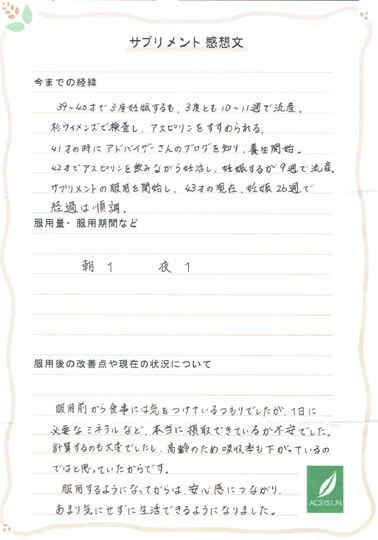 サプリメント 感想文
今までの経緯
39~40才で3度妊娠するも、3度とも10~11週で流産。
杉ウィメンズで検査し、アスピリンをすすめられる。
41才の時にアドバイザーさんのブログを知り、養生開始。
42才でアスピリンを飲みながら妊活し、妊娠するが9週で流産。
サプリメントの服用を開始し、43才の現在、妊娠26週で
経過は順調。
服用量・服用期間など
朝 1 夜 1
服用後の改善点や現在の状況について
服用前から食事には気をつけているつもりでしたが、1日に
必要なミネラルなど、本当に摂取できているか不安でした。
計算するのも大変でしたし、高齢のため吸収率も下がっているの
ではと思っていたからです。
服用するようになってからは、安心感につながり、
あまり気にせずに生活できるようになりました。
ACSYSUN